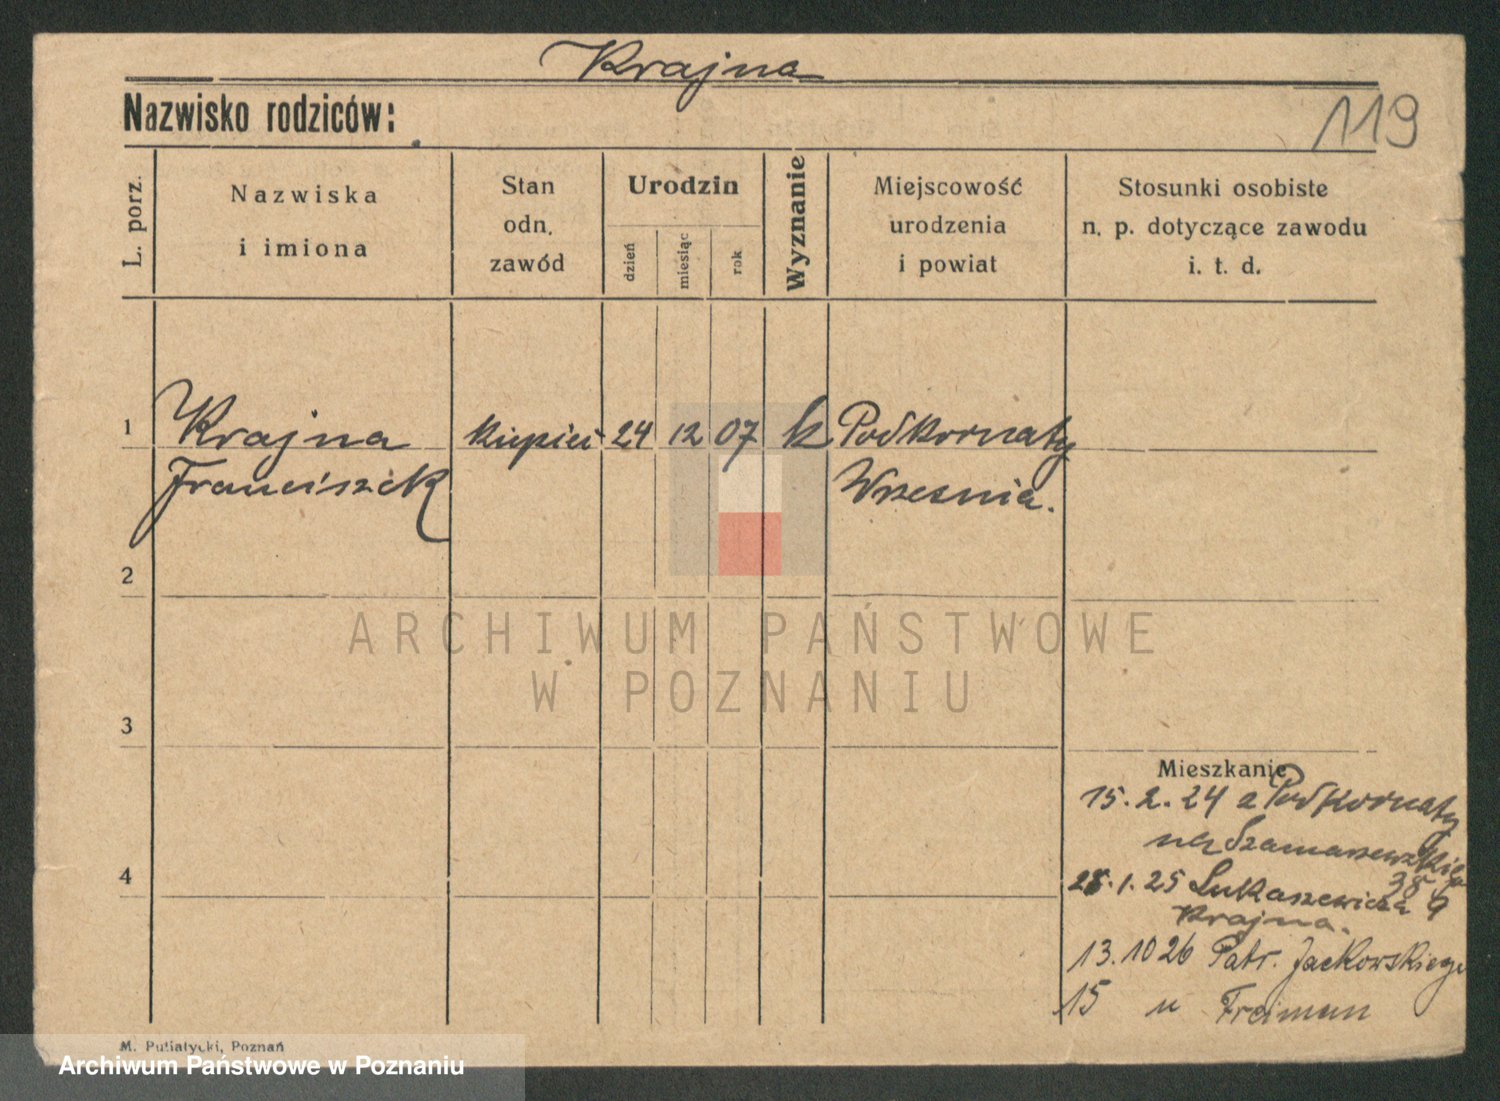 Krajna
Nazwisko rodziców:
119
L. porz.
Nazwiska
i imiona
Stan
odn.
zawód
Urodzin
dzień
miesiąc
rok
Wyznanie
Miejscowość
urodzenia
i powiat
Stosunki osobiste
n. p. dotyczące zawodu
i. t. d.
1
Krajna kupiec 24 12 07 k Podkornaty
Franciszek Wrzesnia.
2
ARCHIWUM PAŃSTWOWE
W POZNANIU
3
Mieszkanie
15. 2. 24 z Podkornaty
na Szamarzewskiego
38
4
1. 25 Łukaszewicza 9
Krajna.
13. 10 26 Patr. Jackowskiego
15 u Freiman
M. Putiatycki, Poznań
Archiwum Państwowe w Poznaniu